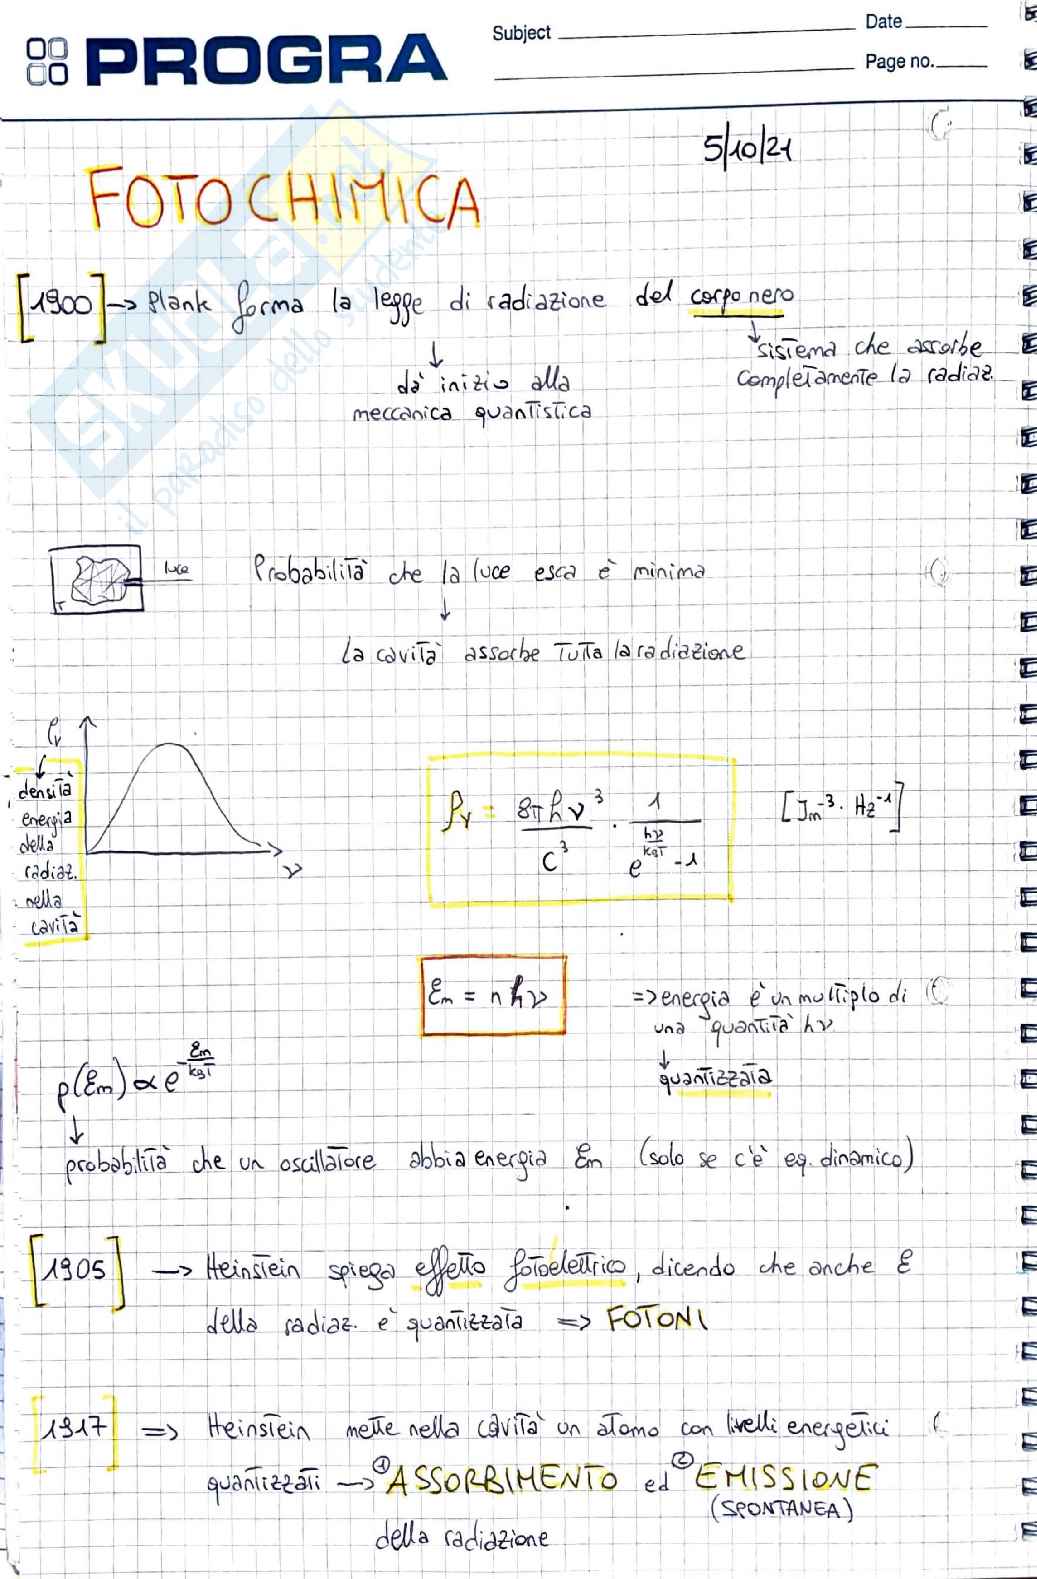 PROGRA
Subject
Date
Page no.
5/10/21
FOTOCHIMICA
[1900] → Plank forma la legge di radiazione del corpo nero
↓ sistema che assorbe
completamente la radiaz.
↓
da' inizio alla
meccanica quantistica
SKUOLA.net
il paradiso dello studente
luce
T
Probabilità che la luce esca è minima
↓
la cavità assorbe tutta la radiazione
ρν
↓
densità
energia
della
radiaz.
nella
cavità
ν
ρν = 8πhν³/c³ · 1/(e^(hν/kBT) -1) [Jm⁻³ · Hz⁻¹]
Em = nhν => energia è un multiplo di
una quantità hν
↓
quantizzata
p(Em) ∝ e^(-Em/kBT)
↓
probabilità che un oscillatore abbia energia Em (solo se c'è eq. dinamico)
[1905] → Heinstein spiega effetto fotoelettrico, dicendo che anche E
della radiaz. è quantizzata => FOTONI
[1917] => Heinstein mette nella cavità un atomo con livelli energetici
quantizzati → ① ASSORBIMENTO ed ② EMISSIONE
(SPONTANEA)
della radiazione